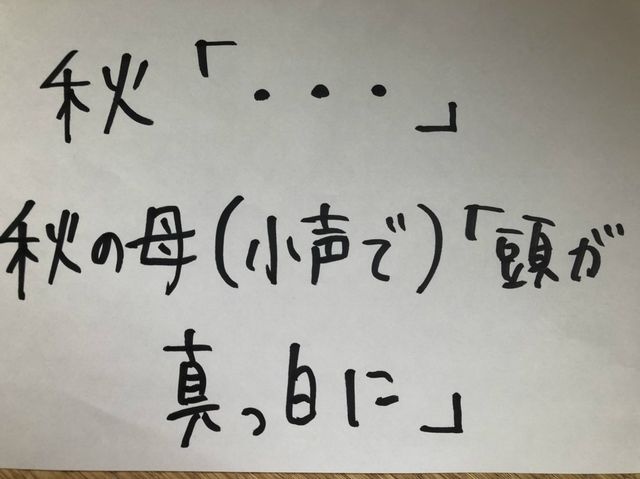 秋「・・・」
秋の母(小声で)「頭が
真っ白に」